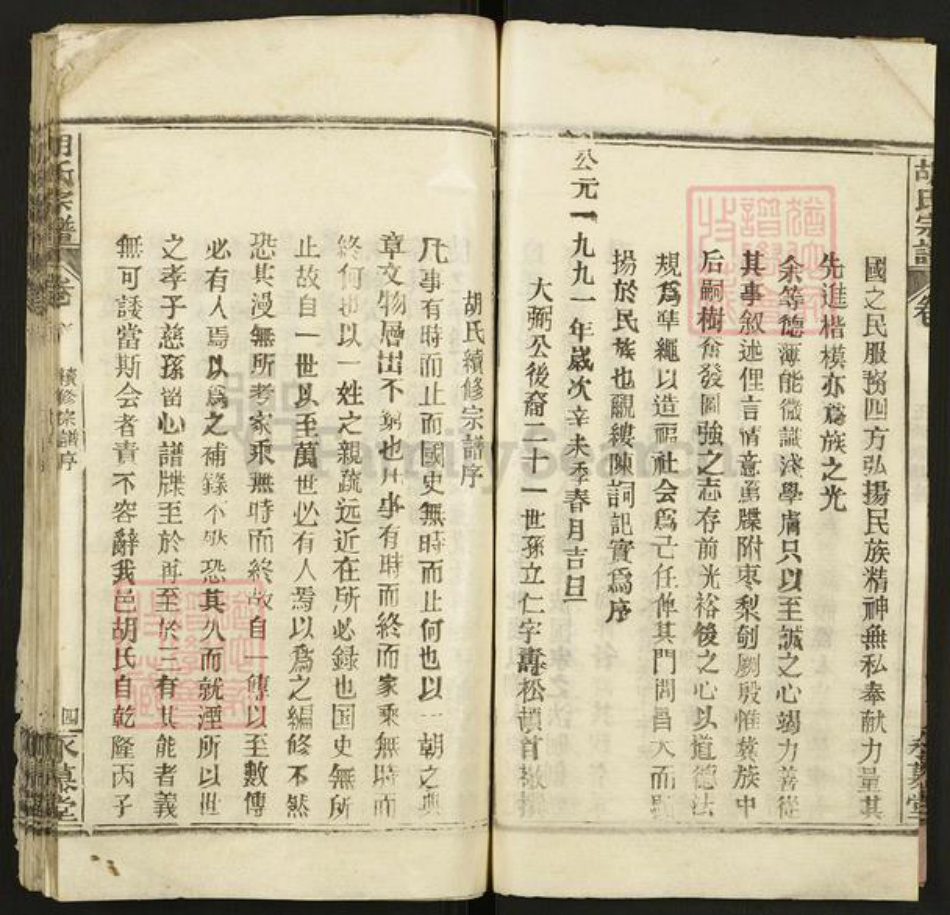 胡氏宗譜 卷
國之民服務四方弘揚民族精神無私奉献力量其
先進楷模亦爲族之光
余等德薄能微識淺學膚只以至誠之心竭力善從
其事叙述俚言情意萬牒附枣梨剞劂殷惟冀族中
后嗣樹奮發圖強之志存前光裕後之心以道德法
規爲準繩以造福社会爲己任俾其門閭昌大而
揚於民族也覼縷陳詞記實爲序
公元一九九一年歲次辛未季春月吉旦
大弼公後裔二十一世孫立仁字壽松頓首
永慕堂
胡氏續修宗譜序
凡事有時而止而國史無時而止何也以一朝之典
章文物層出不窮也凡事有時而終而家乘無時而
終何也以一姓之親疏远近在所必録也国史無所
止故自一世以至萬世必有人焉以爲之編修不然
恐其漫無所考家乘無時而終故自一傳以至數傳
必有人焉以爲之補錄不然恐其久而就湮所以世
之孝子慈孫留心譜牒至於再至於三有其能者義
無可諉當斯会者責不容辭我邑胡氏自乾隆丙子
胡氏宗譜 卷 續修宗譜序 四 永慕堂
FamilySearch